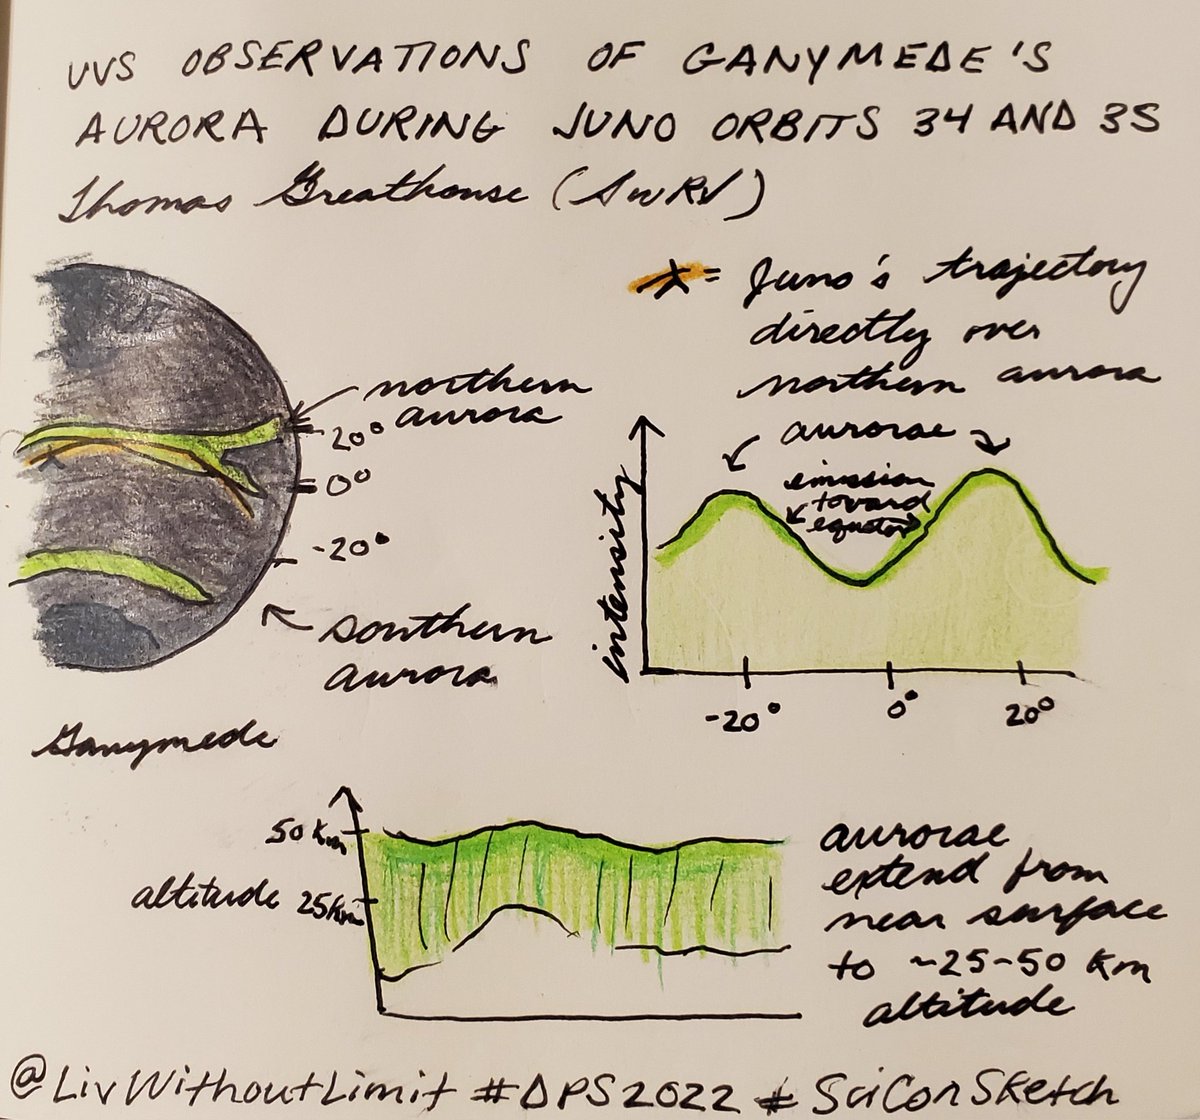 UVS OBSERVATIONS OF GANYMEDE'S
AURORA DURING JUNO ORBITS 34 AND 35
Thomas Greathouse (SwRI)
X = Juno's trajectory
directly over
northern aurora
northern
aurora
20°
0°
-20°
southern
aurora
Ganymede
aurorae
emission
toward
equator
intensity
-20°
0°
20°
50 Km
altitude 25Km
aurorae
extend from
near surface
to ~25-50 Km
altitude
@LivWithoutLimit #DPS2022 #SciConSketch